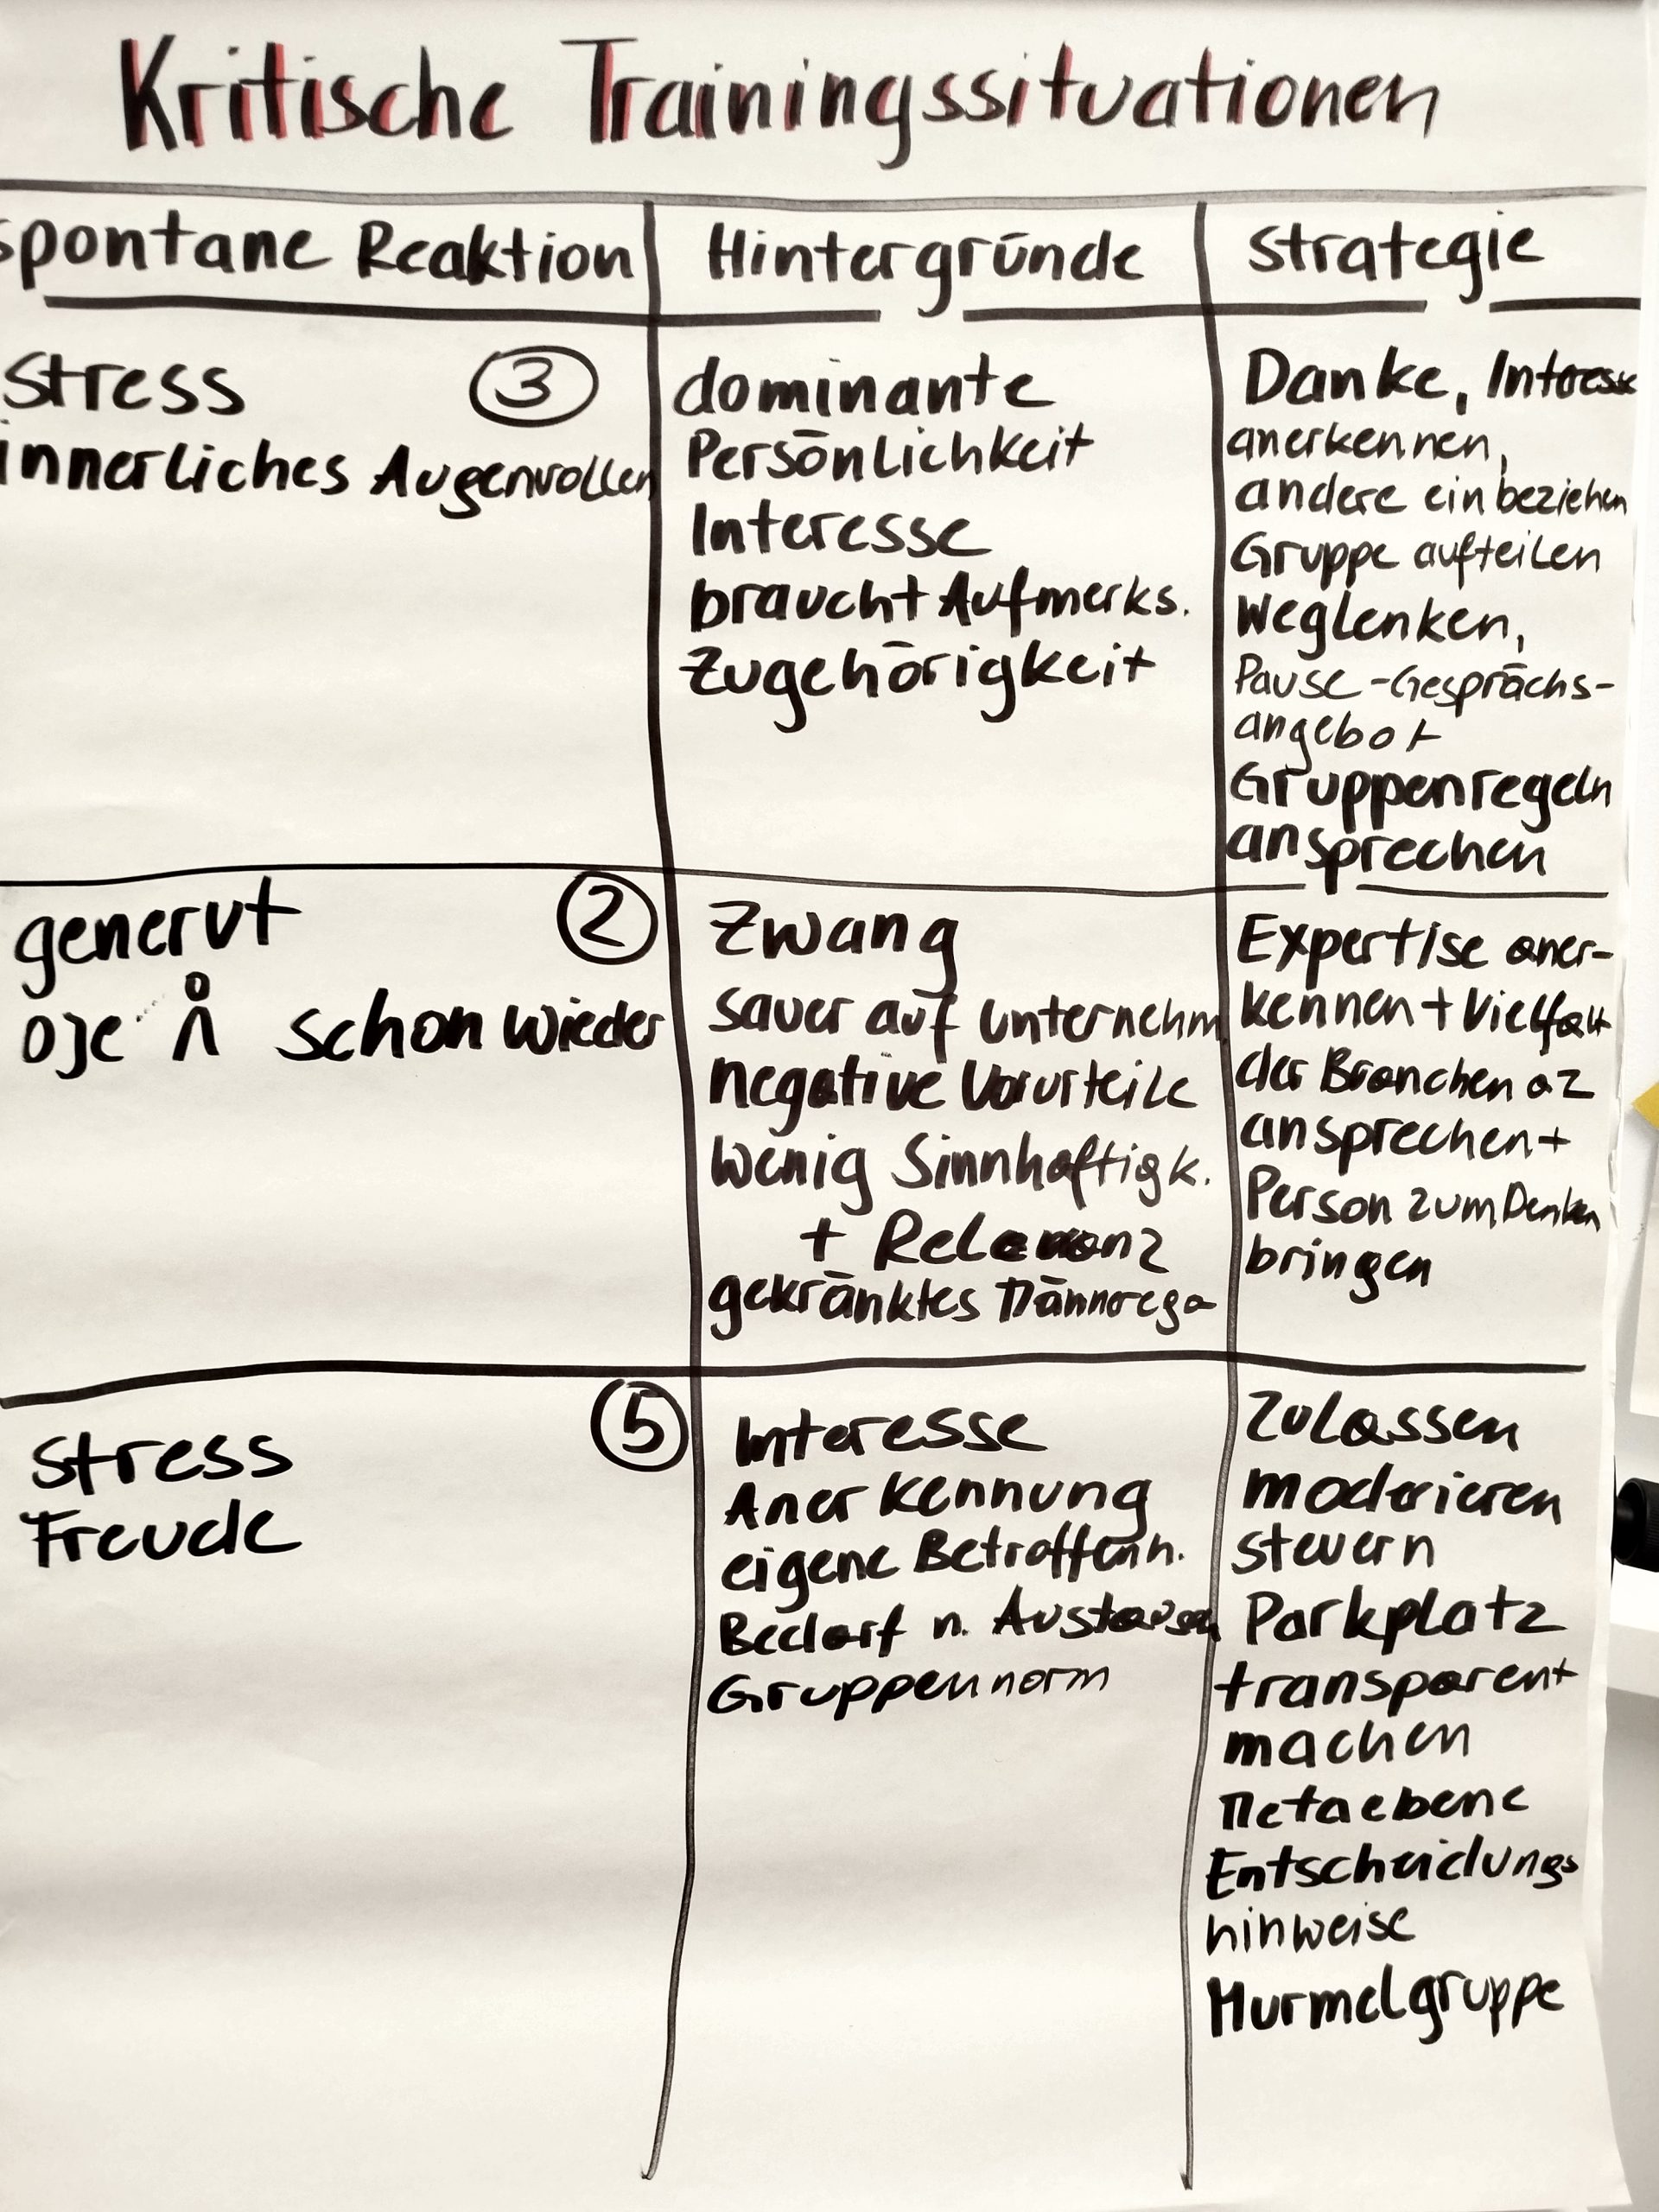 Kritische Trainingssituationen
spontane Reaktion
Hintergründe
Strategie
Stress
③
innerliches Augenrollen
dominante
Persönlichkeit
Interesse
braucht Aufmerks.
Zugehörigkeit
Danke, Interesse
anerkennen,
andere einbeziehen
Gruppe aufteilen
Weglenken,
Pause-Gesprächs-
angebot
Gruppenregeln
ansprechen
genervt
②
oje schon wieder
Zwang
sauer auf Unternehm
negative Vorurteile
wenig Sinnhaftigk.
+ Relevanz
gekränktes Männerego
Expertise aner-
kennen + Vielfalt
der Branchen
ansprechen +
Person zum Denken
bringen
Stress
⑤
Freude
Interesse
Anerkennung
eigene Betroffenh.
Bedarf n. Austausch
Gruppennorm
Zulassen
moderieren
steuern
Parkplatz
transparent
machen
Metaebene
Entscheidungs
hinweise
Murmelgruppe